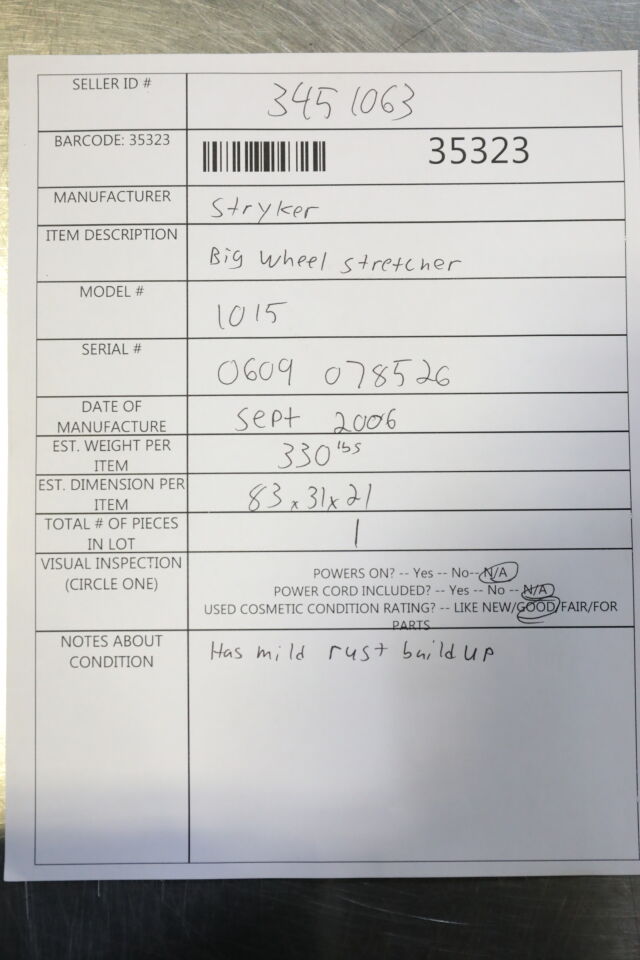 SELLER ID # 3451063
BARCODE: 35323 35323
MANUFACTURER Stryker
ITEM DESCRIPTION Big Wheel Stretcher
MODEL # 1015
SERIAL # 0609 078526
DATE OF
MANUFACTURE Sept 2006
EST. WEIGHT PER
ITEM 330 lbs
EST. DIMENSION PER
ITEM 83 x 31 x 21
TOTAL # OF PIECES
IN LOT 1
VISUAL INSPECTION
(CIRCLE ONE)
POWERS ON? -- Yes -- No-- N/A
POWER CORD INCLUDED? -- Yes -- No -- N/A
USED COSMETIC CONDITION RATING? -- LIKE NEW/GOOD/FAIR/FOR
PARTS
NOTES ABOUT
CONDITION
Has mild rust build up